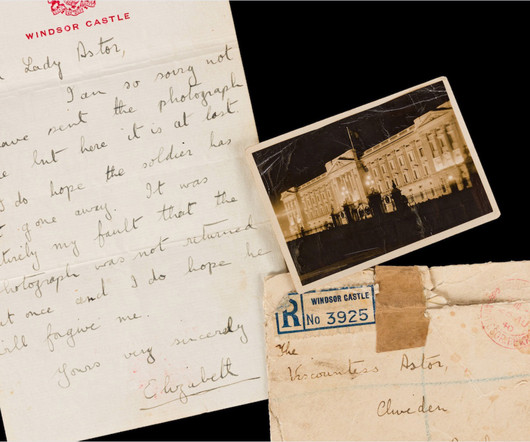 WINDSOR CASTLE
Lady Astor,
I am so sorry not
have sent the photograph
but here it is at last.
do hope the soldier has
gone away. It was
entirely my fault that the
photograph was not returned
at once and I do hope he
will forgive me.
Yours very sincerely
Elizabeth
R
WINDSOR CASTLE
No 3925
The
Viscountess Astor,
Cliveden